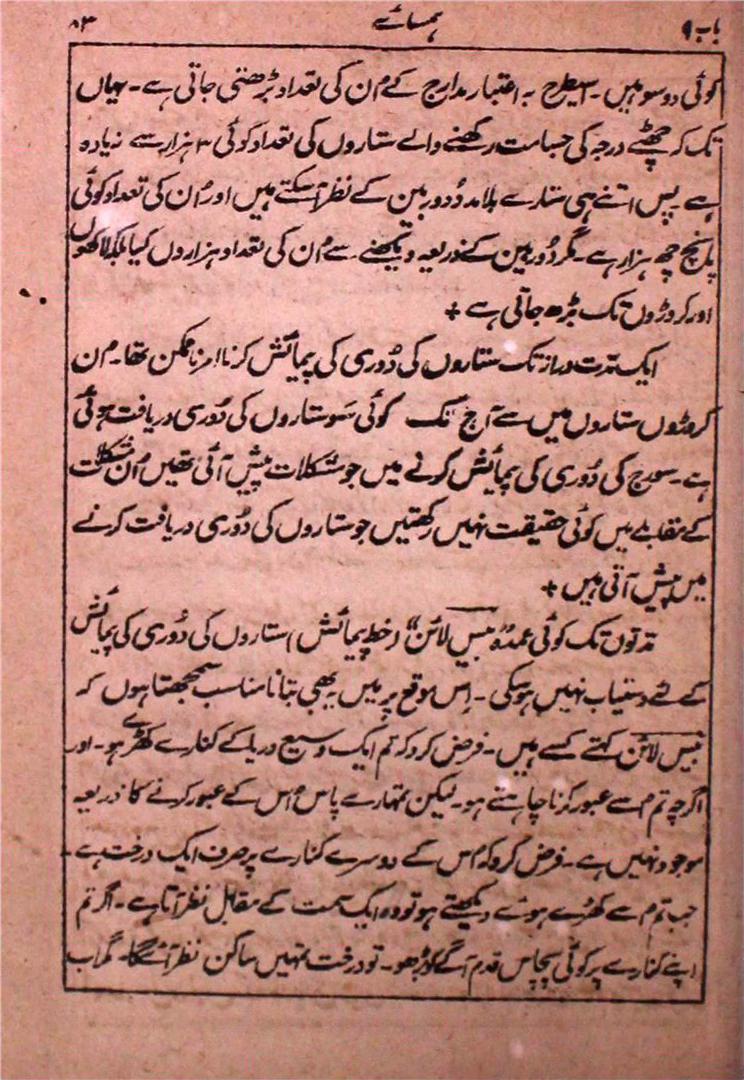 باب ۹ ہمسائے ۸۳
کوئی دو سو ہیں۔ اسیطرح بہ اعتبار مدارج کے اُن کی تعداد بڑھتی جاتی ہے۔ یہاں
تک کہ چھٹے درجہ کی جسامت رکھنے والے ستاروں کی تعداد کوئی ۳ ہزار سے زیادہ
ہے پس اتنے ہی ستارے بلا مدد دُوربین کے نظر آسکتے ہیں اور اُن کی تعداد کوئی
پانچ چھ ہزار ہے۔ مگر دُوربین کے ذریعہ دیکھنے سے اُن کی تعداد ہزاروں کیا بلکہ لاکھوں
اور کروڑوں تک بڑھ جاتی ہے +
ایک مدت دراز تک ستاروں کی دُوری کی پیمائش کرنا امر ناممکن تھا۔ اُن
کروڑوں ستاروں میں سے آج تک کوئی سَو ستاروں کی دُوری دریافت ہوئی
ہے۔ سورج کی دُوری کی پیمائش کرنے میں جو مُشکلات پیش آئی تھیں اُن مُشکلات
کے مقابلے میں کوئی حقیقت نہیں رکھتیں جو ستاروں کی دُوری دریافت کرنے
میں پیش آتی ہیں +
مدتوں تک کوئی عمدہ بیس لائن“ (خط پیمائش) ستاروں کی دُوری کی پیمائش
کے لئے دستیاب نہیں ہوسکی۔ اِس موقع پر میں یہ بھی بتانا مناسب سمجھتا ہوں کہ
بیس لائن کہتے کسے ہیں۔ فرض کرو کہ تم ایک وسیع دریا کے کنارے کھڑے ہو۔ اور
اگرچہ تم اُسے عبور کرنا چاہتے ہو۔ لیکن تمہارے پاس اُس کے عبور کرنے کا ذریعہ
موجود نہیں ہے۔ فرض کرو کہ اُس کے دوسرے کنارے پر صرف ایک درخت ہے۔
جب تم اُسے کھڑے ہوئے دیکھتے ہو تو وہ ایک سمت کے مقابل نظر آتا ہے۔ اگر تم
اپنے کنارے پر کوئی پچاس قدم آگے کو بڑھو۔ تو درخت تمہیں ساکن نظر آئے گا۔ مگر اب